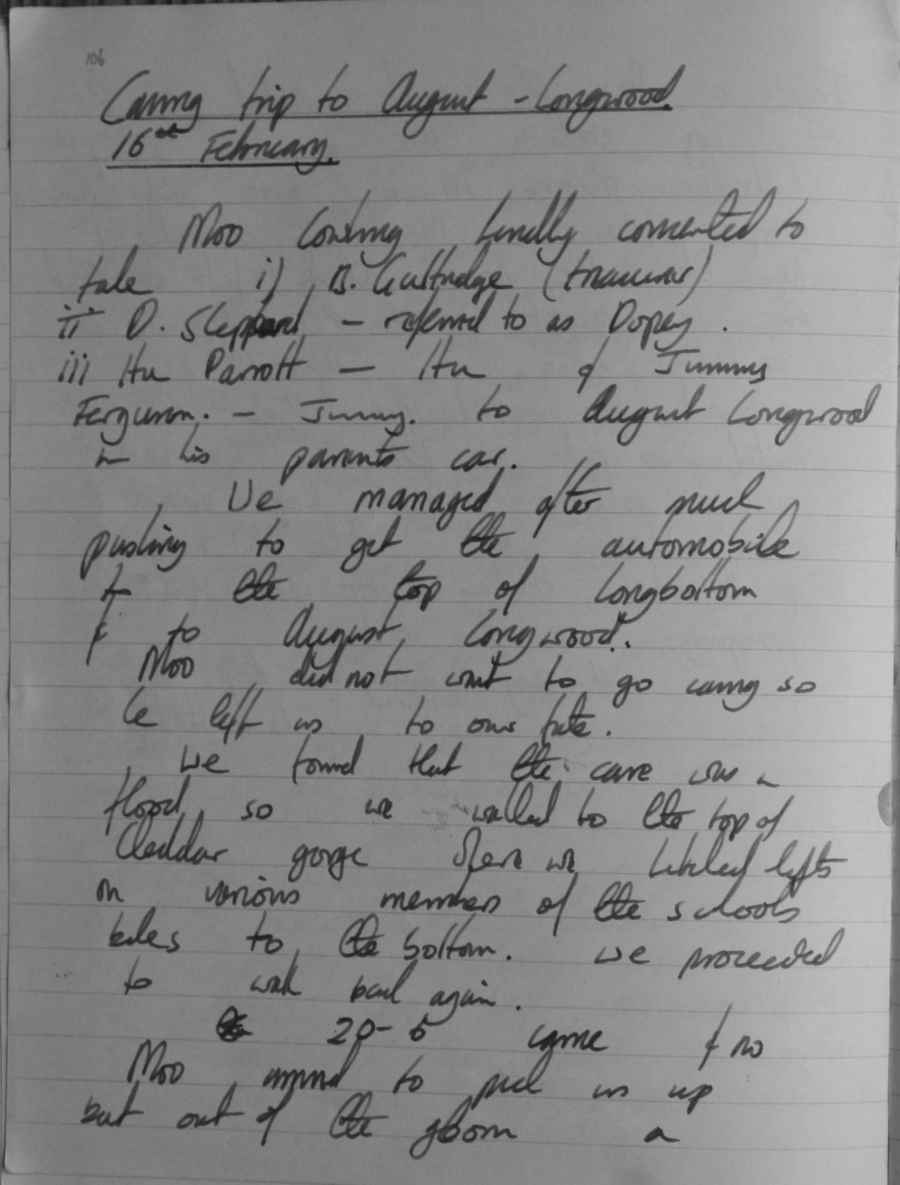 106
Caving trip to August - Longwood
16th February.
Moo Cowling finally consented to
take i) B. Guttridge (treasurer)
ii D. Sheppard - referred to as Dopey.
iii Hu Parrott - Hu & Jimmy
Ferguson. - Jimmy. to August Longwood
in his parents car.
We managed after much
pushing to get the automobile
to the top of Longbottom
& to August Longwood.
Moo did not want to go caving so
he left us to our fate.
We found that the cave was in
flood so we walked to the top of
Cheddar gorge where we hitched lifts
on various members of the schools
bikes to the bottom. We proceeded
to walk back again.
20-5 came & no
Moo arrived to pick us up
but out of the gloom a